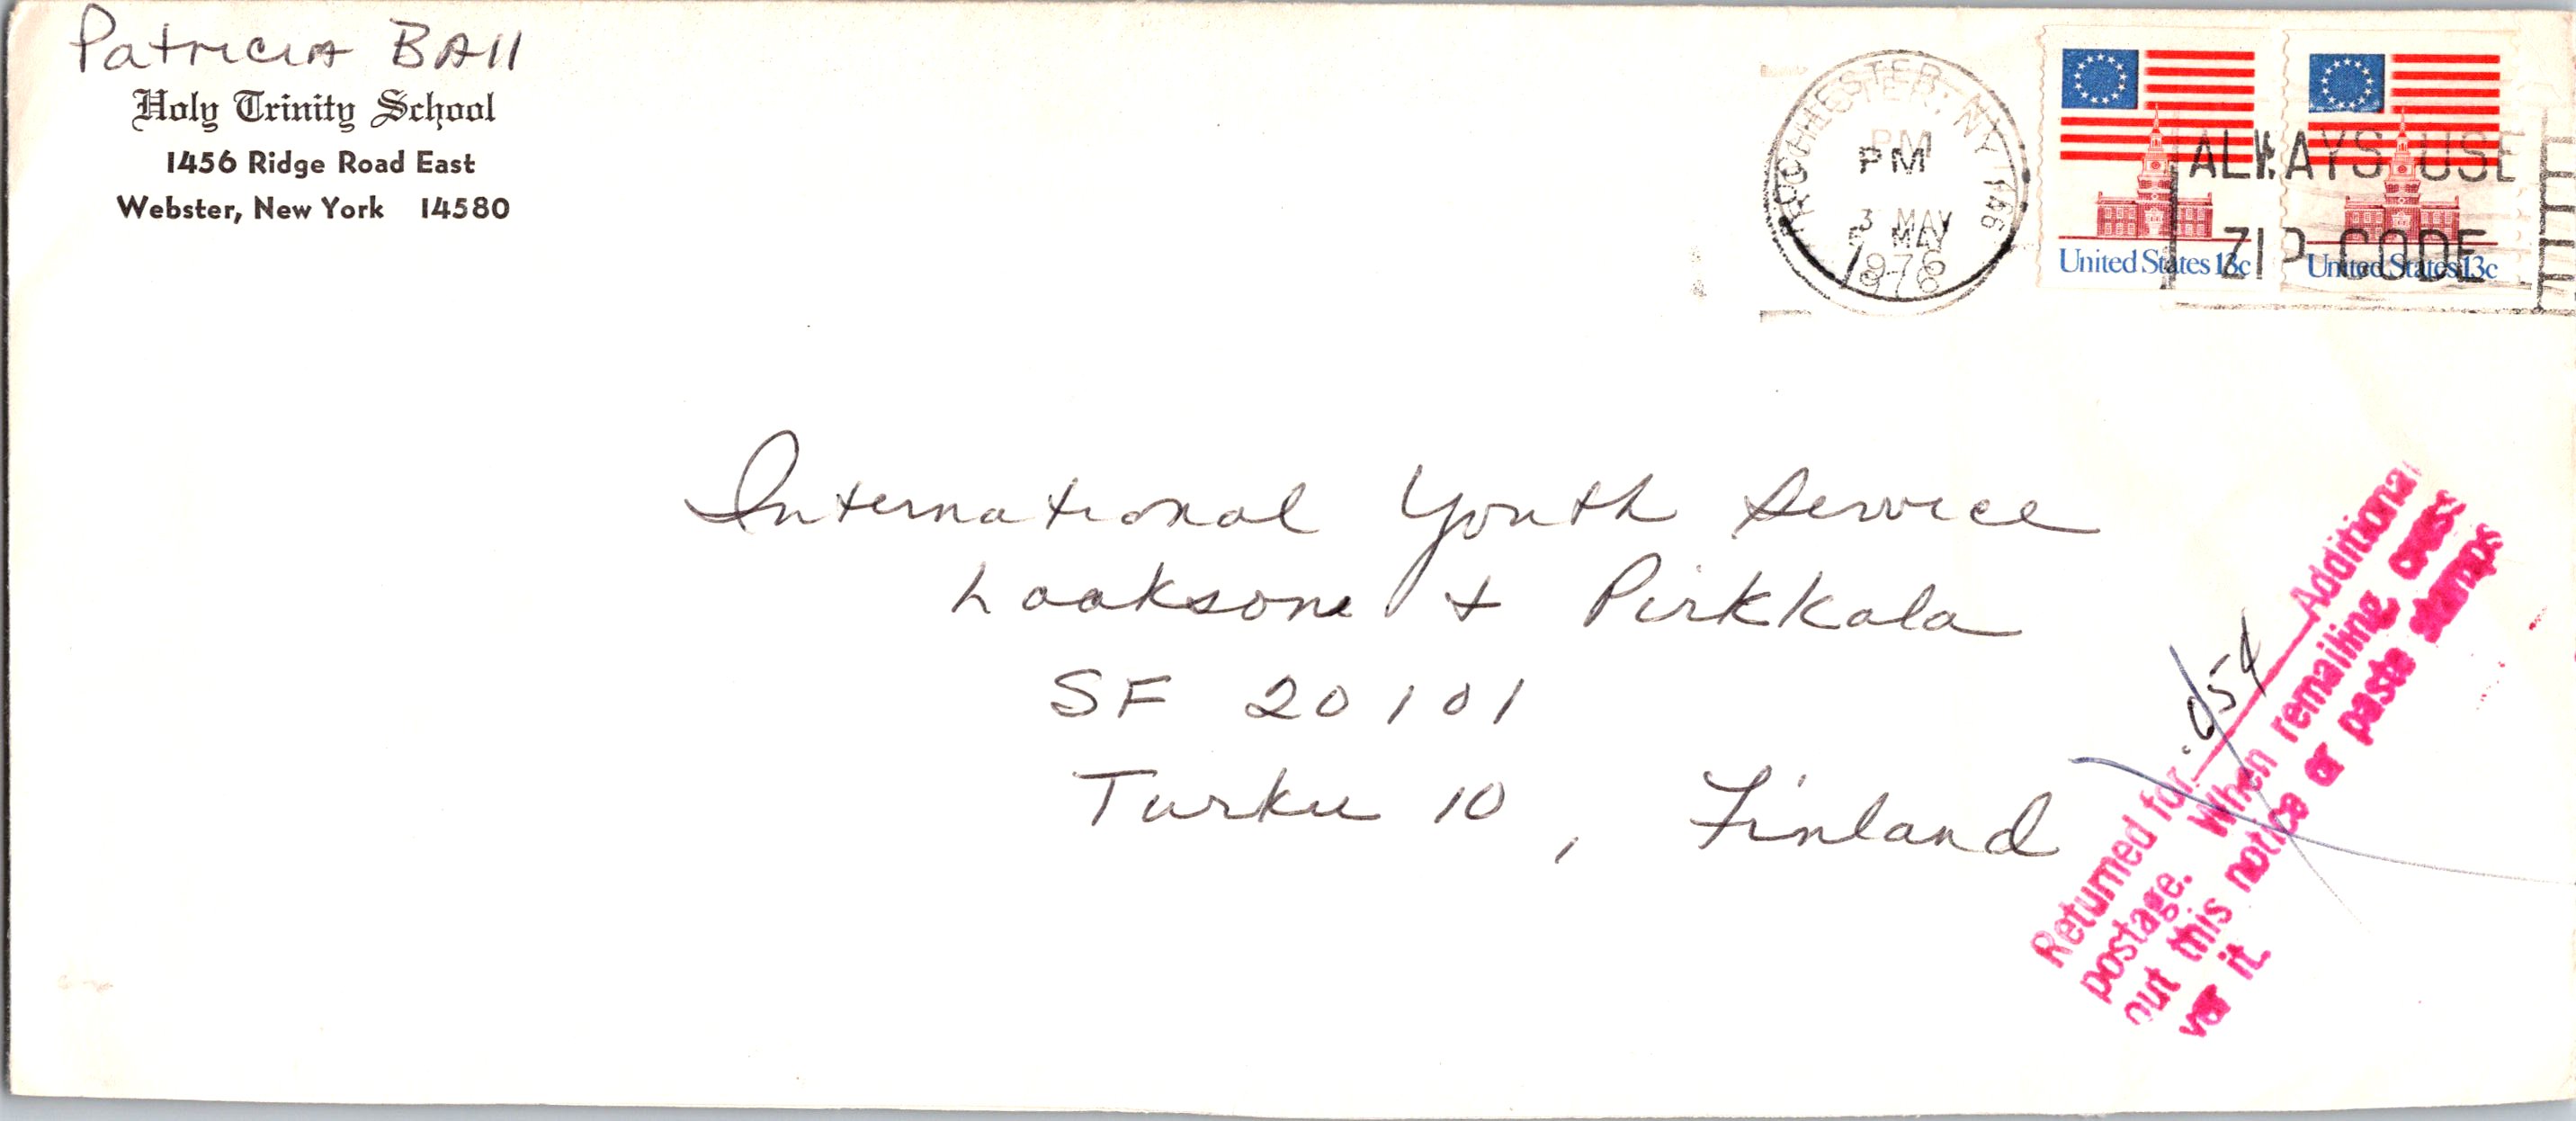 Patricia Ball
Holy Trinity School
1456 Ridge Road East
Webster, New York 14580
ROCHESTER, NY 146
PM
PM
3 MAY
5 MAY
1976
1976
United States 13c
United States 13c
ALWAYS USE
ZIP CODE
International Youth Service
Laaksone + Pirkkala
SF 20101
Turku 10, Finland
Returned for Additional
postage. When remailing cross
out this notice or paste stamps
ver it.